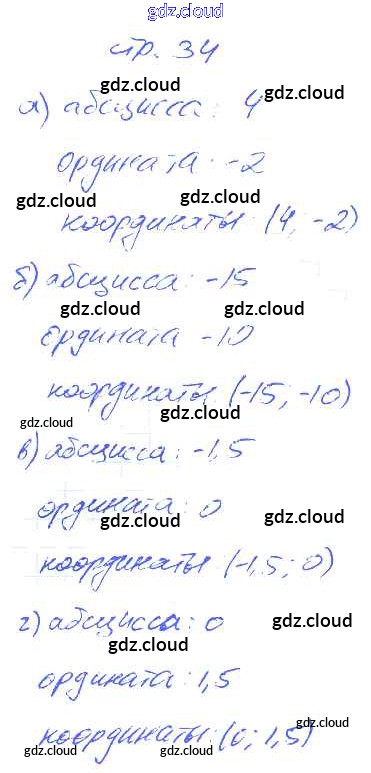 gdz.cloud
стр. 34
gdz.cloud gdz.cloud
а) абсцисса: 4
gdz.cloud gdz.cloud
ордината: -2
gdz.cloud gdz.cloud
координаты: (4; -2)
б) абсцисса: -15
gdz.cloud gdz.cloud
ордината -10
координаты: (-15; -10)
gdz.cloud gdz.cloud
в) абсцисса: -1,5
ордината: 0
gdz.cloud gdz.cloud
координаты: (-1,5; 0)
gdz.cloud
г) абсцисса: 0
gdz.cloud gdz.cloud
ордината: 1,5
gdz.cloud
координаты: (0; 1,5)
gdz.cloud gdz.cloud